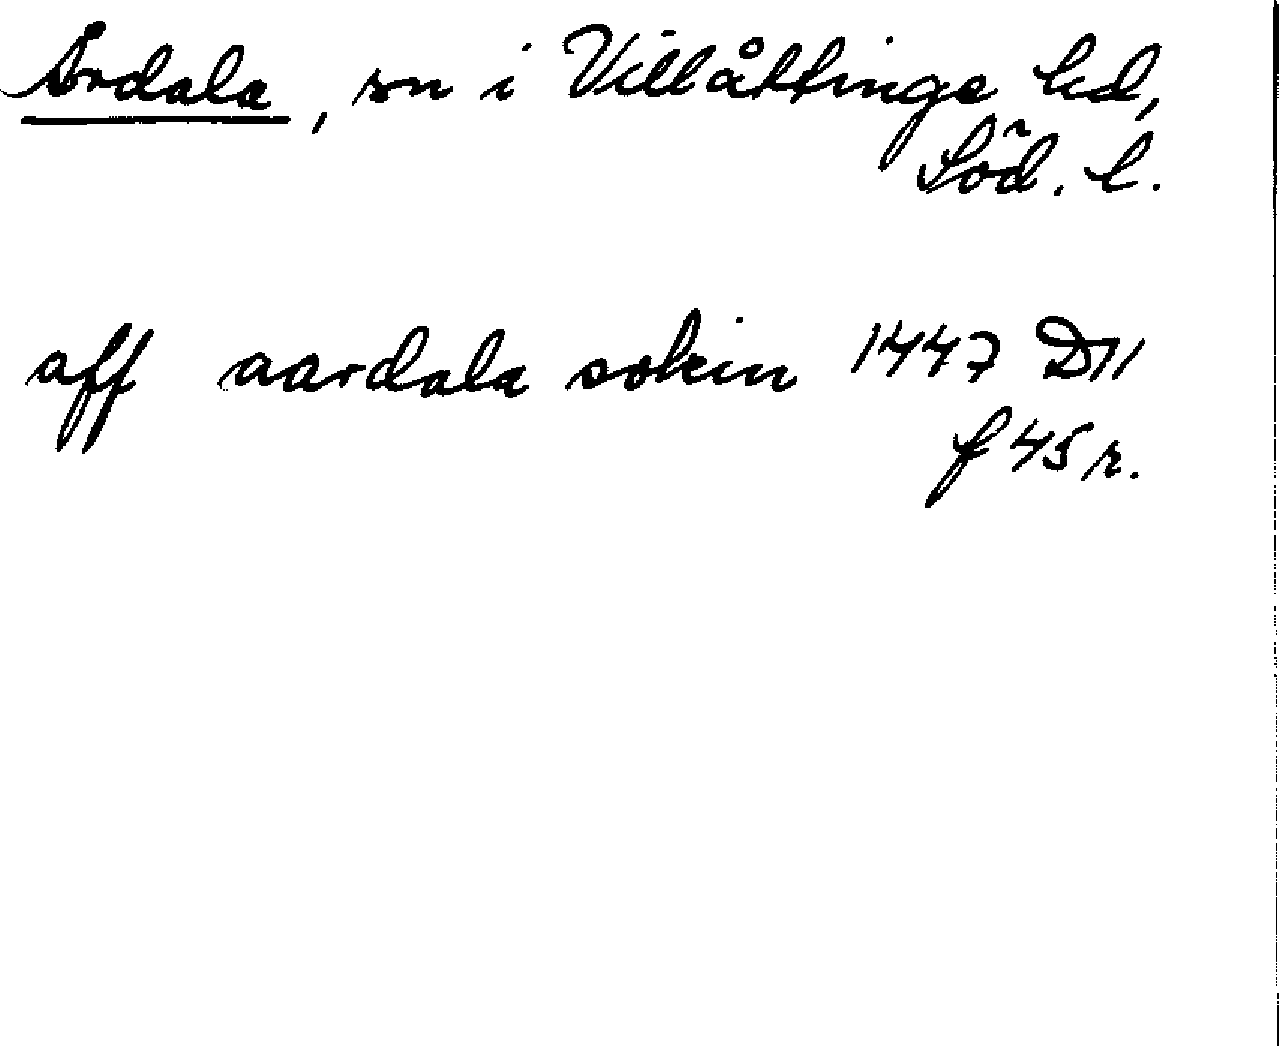 Årdala, sn i Villåttinge hd,
Söd. l.
aff aardala sokin 1447 D11
f 45 r.